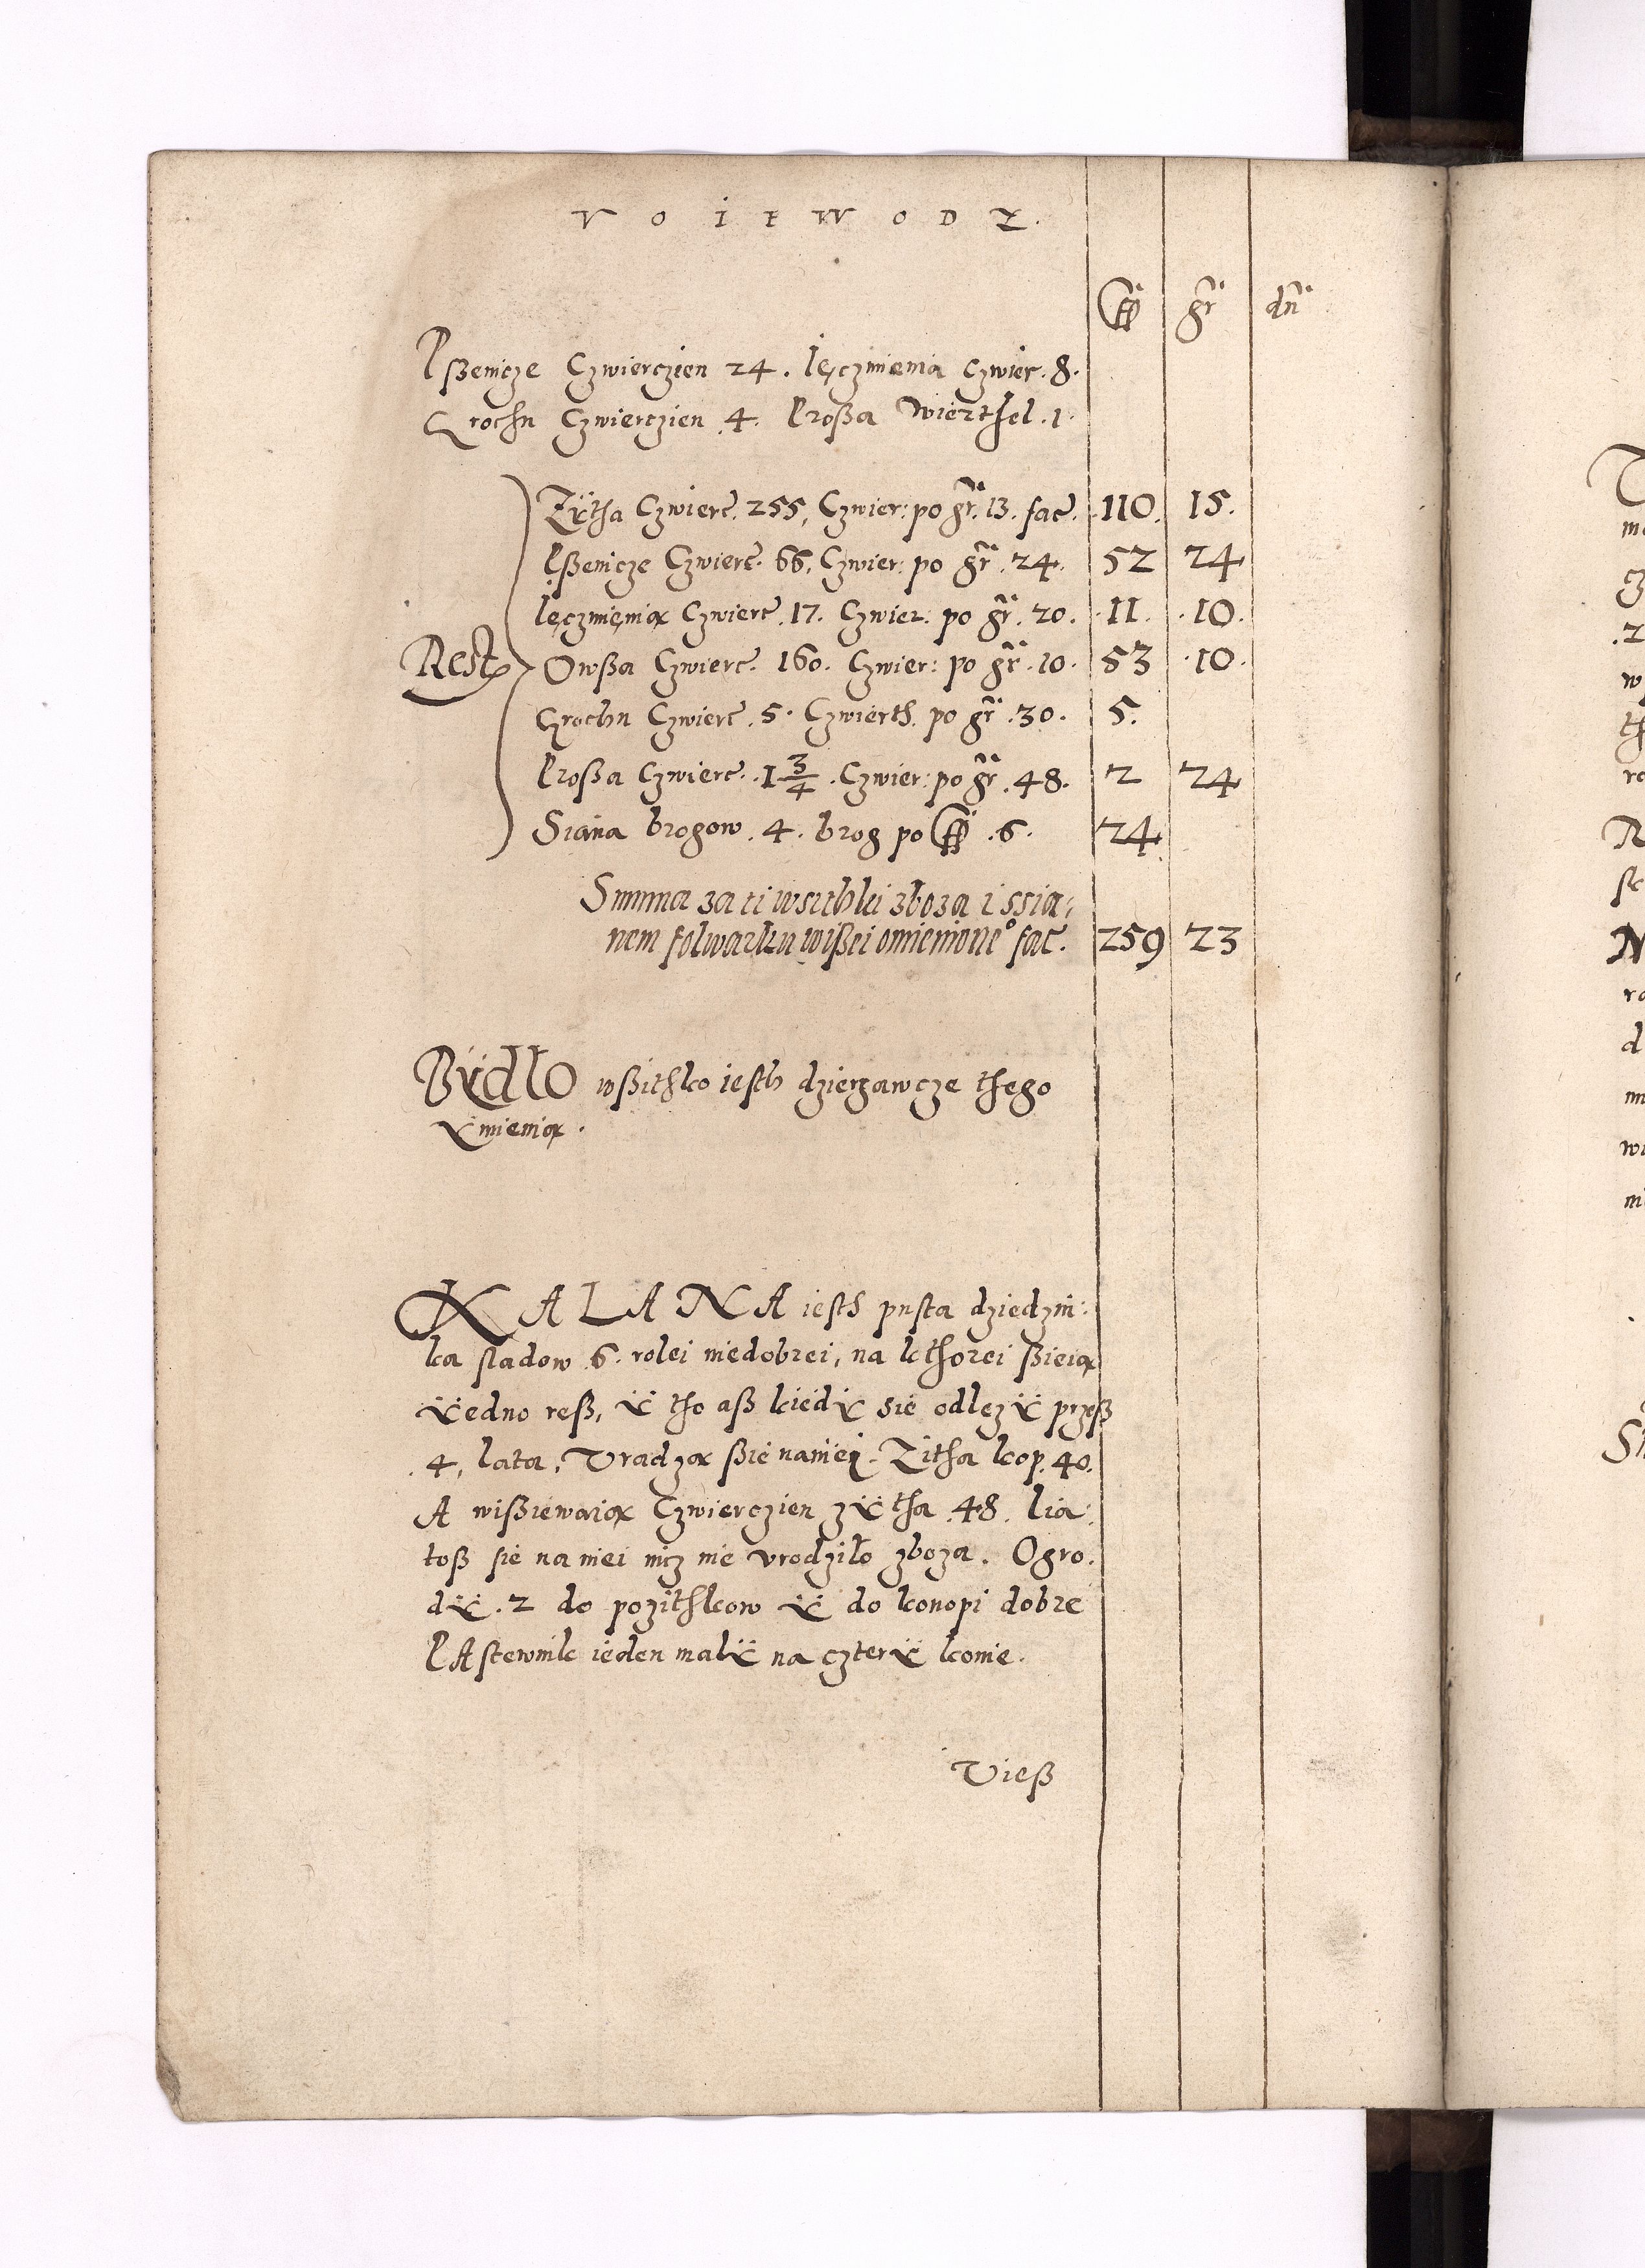 VOIEWODZ.
fl gr dn
Pßenicze Czwierczien 24. Ięczmienia Czwier. 8.
Grochu Czwierczien 4. Proßa Wierthel .1.
Zÿtha Czwierc. 255, Czwier: po gr. 13. fac. 110. 15.
Pßenicze Czwierc. 66, Czwier: po gr. 24. 52 24
Ięczmienią Czwierc. 17. Czwier: po gr. 20. 11. 10.
Rest Owßa Czwierc. 160. Czwier: po gr. 10. 53 10.
Grochu Czwierc. 5. Czwierth. po gr. 30. 5.
Proßa Czwierc. 1 3/4. Czwier: po gr. 48. 2 24
Siana brogow 4. brog po fl .6. 24
Summa za ti wsithki zboza i ssia-
nem folwarku wißei omienione° fac. 259 23
Bydło wßithko iesth dzierzawcze thego
ymienią.
KALANA iesth pusta dziedzin:
ka sladow 6. rolei niedobrei, na kthorei ßieią
ÿedno reß, ÿ tho aß kiedy sie odlezÿ przeß
4, lata, Vradzą ßie namieÿ. Zitha kop. 40.
A wißiewaią Czwierczien zÿtha .48. lia:
toß sie na niei nicz nie vrodziło zboza. Ogro.
dÿ .2 do pozithkow ÿ do konopi dobre
PAstewnik ieden malÿ na czterÿ konie.
Vieß